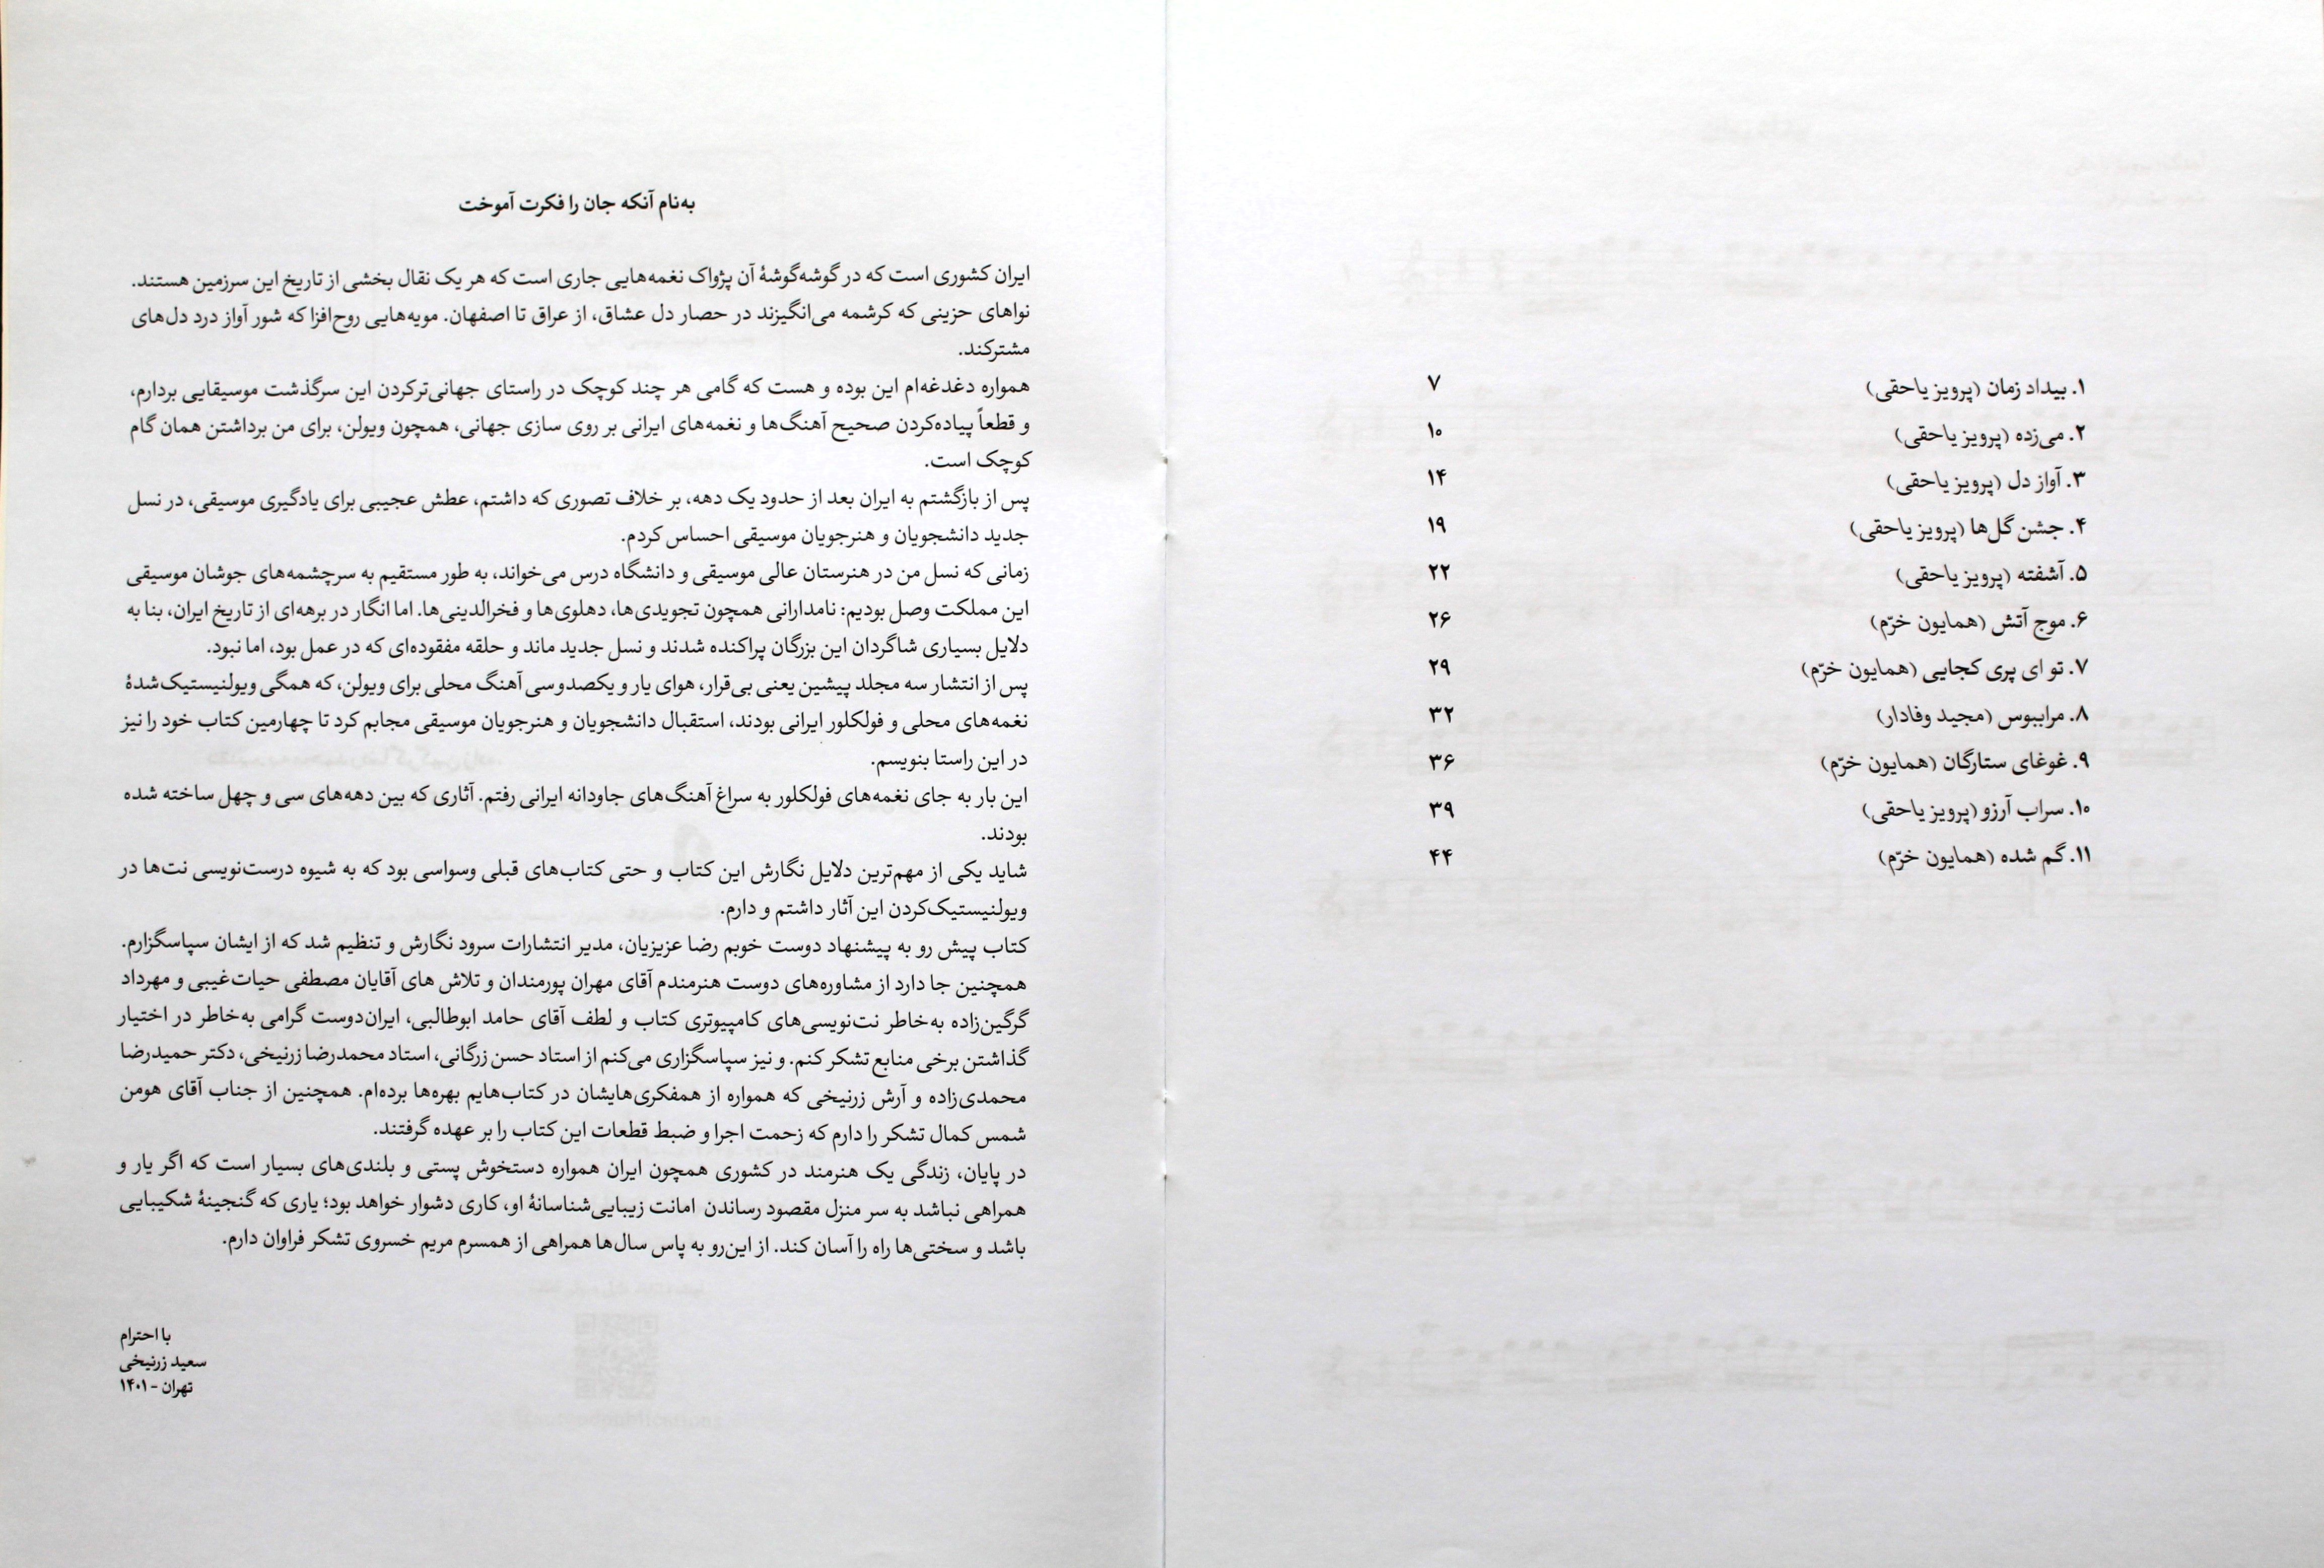 ۱. بیداد زمان (پرویز یاحقی) ۷
۲. می‌زده (پرویز یاحقی) ۱۰
۳. آواز دل (پرویز یاحقی) ۱۴
۴. جشن گل‌ها (پرویز یاحقی) ۱۹
۵. آشفته (پرویز یاحقی) ۲۲
۶. موج آتش (همایون خرّم) ۲۶
۷. تو ای پری کجایی (همایون خرّم) ۲۹
۸. مراببوس (مجید وفادار) ۳۲
۹. غوغای ستارگان (همایون خرّم) ۳۶
۱۰. سراب آرزو (پرویز یاحقی) ۳۹
۱۱. گم شده (همایون خرّم) ۴۴
به‌نام آنکه جان را فکرت آموخت
ایران کشوری است که در گوشه‌گوشهٔ آن پژواک نغمه‌هایی جاری است که هر یک نقال بخشی از تاریخ این سرزمین هستند.
نواهای حزینی که کرشمه می‌انگیزند در حصار دل عشاق، از عراق تا اصفهان. مویه‌هایی روح‌افزا که شور آواز درد دل‌های
مشترکند.
همواره دغدغه‌ام این بوده و هست که گامی هر چند کوچک در راستای جهانی‌ترکردن این سرگذشت موسیقایی بردارم،
و قطعاً پیاده‌کردن صحیح آهنگ‌ها و نغمه‌های ایرانی بر روی سازی جهانی، همچون ویولن، برای من برداشتن همان گام
کوچک است.
پس از بازگشتم به ایران بعد از حدود یک دهه، بر خلاف تصوری که داشتم، عطش عجیبی برای یادگیری موسیقی، در نسل
جدید دانشجویان و هنرجویان موسیقی احساس کردم.
زمانی که نسل من در هنرستان عالی موسیقی و دانشگاه درس می‌خواند، به طور مستقیم به سرچشمه‌های جوشان موسیقی
این مملکت وصل بودیم: نامدارانی همچون تجویدی‌ها، دهلوی‌ها و فخرالدینی‌ها. اما انگار در برهه‌ای از تاریخ ایران، بنا به
دلایل بسیاری شاگردان این بزرگان پراکنده شدند و نسل جدید ماند و حلقه مفقوده‌ای که در عمل بود، اما نبود.
پس از انتشار سه مجلد پیشین یعنی بی‌قرار، هوای یار و یکصدوسی آهنگ محلی برای ویولن، که همگی ویولنیستیک‌شدهٔ
نغمه‌های محلی و فولکلور ایرانی بودند، استقبال دانشجویان و هنرجویان موسیقی مجابم کرد تا چهارمین کتاب خود را نیز
در این راستا بنویسم.
این بار به جای نغمه‌های فولکلور به سراغ آهنگ‌های جاودانه ایرانی رفتم. آثاری که بین دهه‌های سی و چهل ساخته شده
بودند.
شاید یکی از مهم‌ترین دلایل نگارش این کتاب و حتی کتاب‌های قبلی وسواسی بود که به شیوه درست‌نویسی نت‌ها در
ویولنیستیک‌کردن این آثار داشتم و دارم.
کتاب پیش رو به پیشنهاد دوست خوبم رضا عزیزیان، مدیر انتشارات سرود نگارش و تنظیم شد که از ایشان سپاسگزارم.
همچنین جا دارد از مشاوره‌های دوست هنرمندم آقای مهران پورمندان و تلاش های آقایان مصطفی حیات‌غیبی و مهرداد
گرگین‌زاده به‌خاطر نت‌نویسی‌های کامپیوتری کتاب و لطف آقای حامد ابوطالبی، ایران‌دوست گرامی به‌خاطر در اختیار
گذاشتن برخی منابع تشکر کنم. و نیز سپاسگزاری می‌کنم از استاد حسن زرگانی، استاد محمدرضا زرنیخی، دکتر حمیدرضا
محمدی‌زاده و آرش زرنیخی که همواره از همفکری‌هایشان در کتاب‌هایم بهره‌ها برده‌ام. همچنین از جناب آقای هومن
شمس کمال تشکر را دارم که زحمت اجرا و ضبط قطعات این کتاب را بر عهده گرفتند.
در پایان، زندگی یک هنرمند در کشوری همچون ایران همواره دستخوش پستی و بلندی‌های بسیار است که اگر یار و
همراهی نباشد به سر منزل مقصود رساندن امانت زیبایی‌شناسانهٔ او، کاری دشوار خواهد بود؛ یاری که گنجینهٔ شکیبایی
باشد و سختی‌ها راه را آسان کند. از این‌رو به پاس سال‌ها همراهی از همسرم مریم خسروی تشکر فراوان دارم.
با احترام
سعید زرنیخی
تهران - ۱۴۰۱